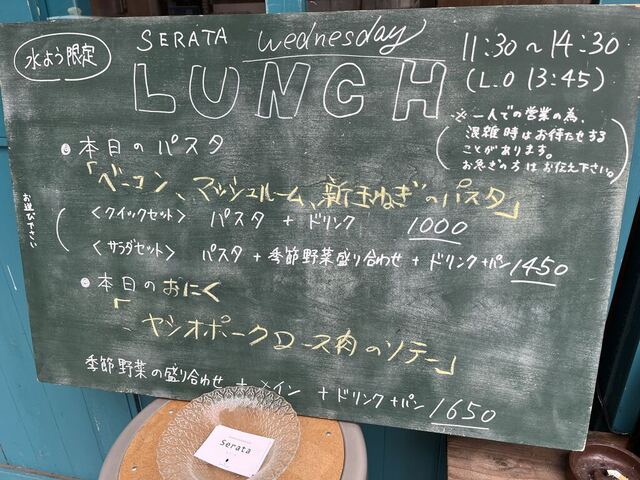 水よう限定
SERATA Wednesday
LUNCH
11:30～14:30
(L.O 13:45)
※一人での営業の為、
混雑時はお待たせする
ことがあります。
お急ぎの方はお伝え下さい。
●本日のパスタ
「ベーコン、マッシュルーム、新玉ねぎのパスタ」
お選び下さい
＜クイックセット＞ パスタ + ドリンク 1000
＜サラダセット＞ パスタ + 季節野菜盛り合わせ + ドリンク+パン 1450
●本日のおにく
「ヤシオポークロース肉のソテー」
季節野菜の盛り合わせ + メイン + ドリンク+パン 1650
serata